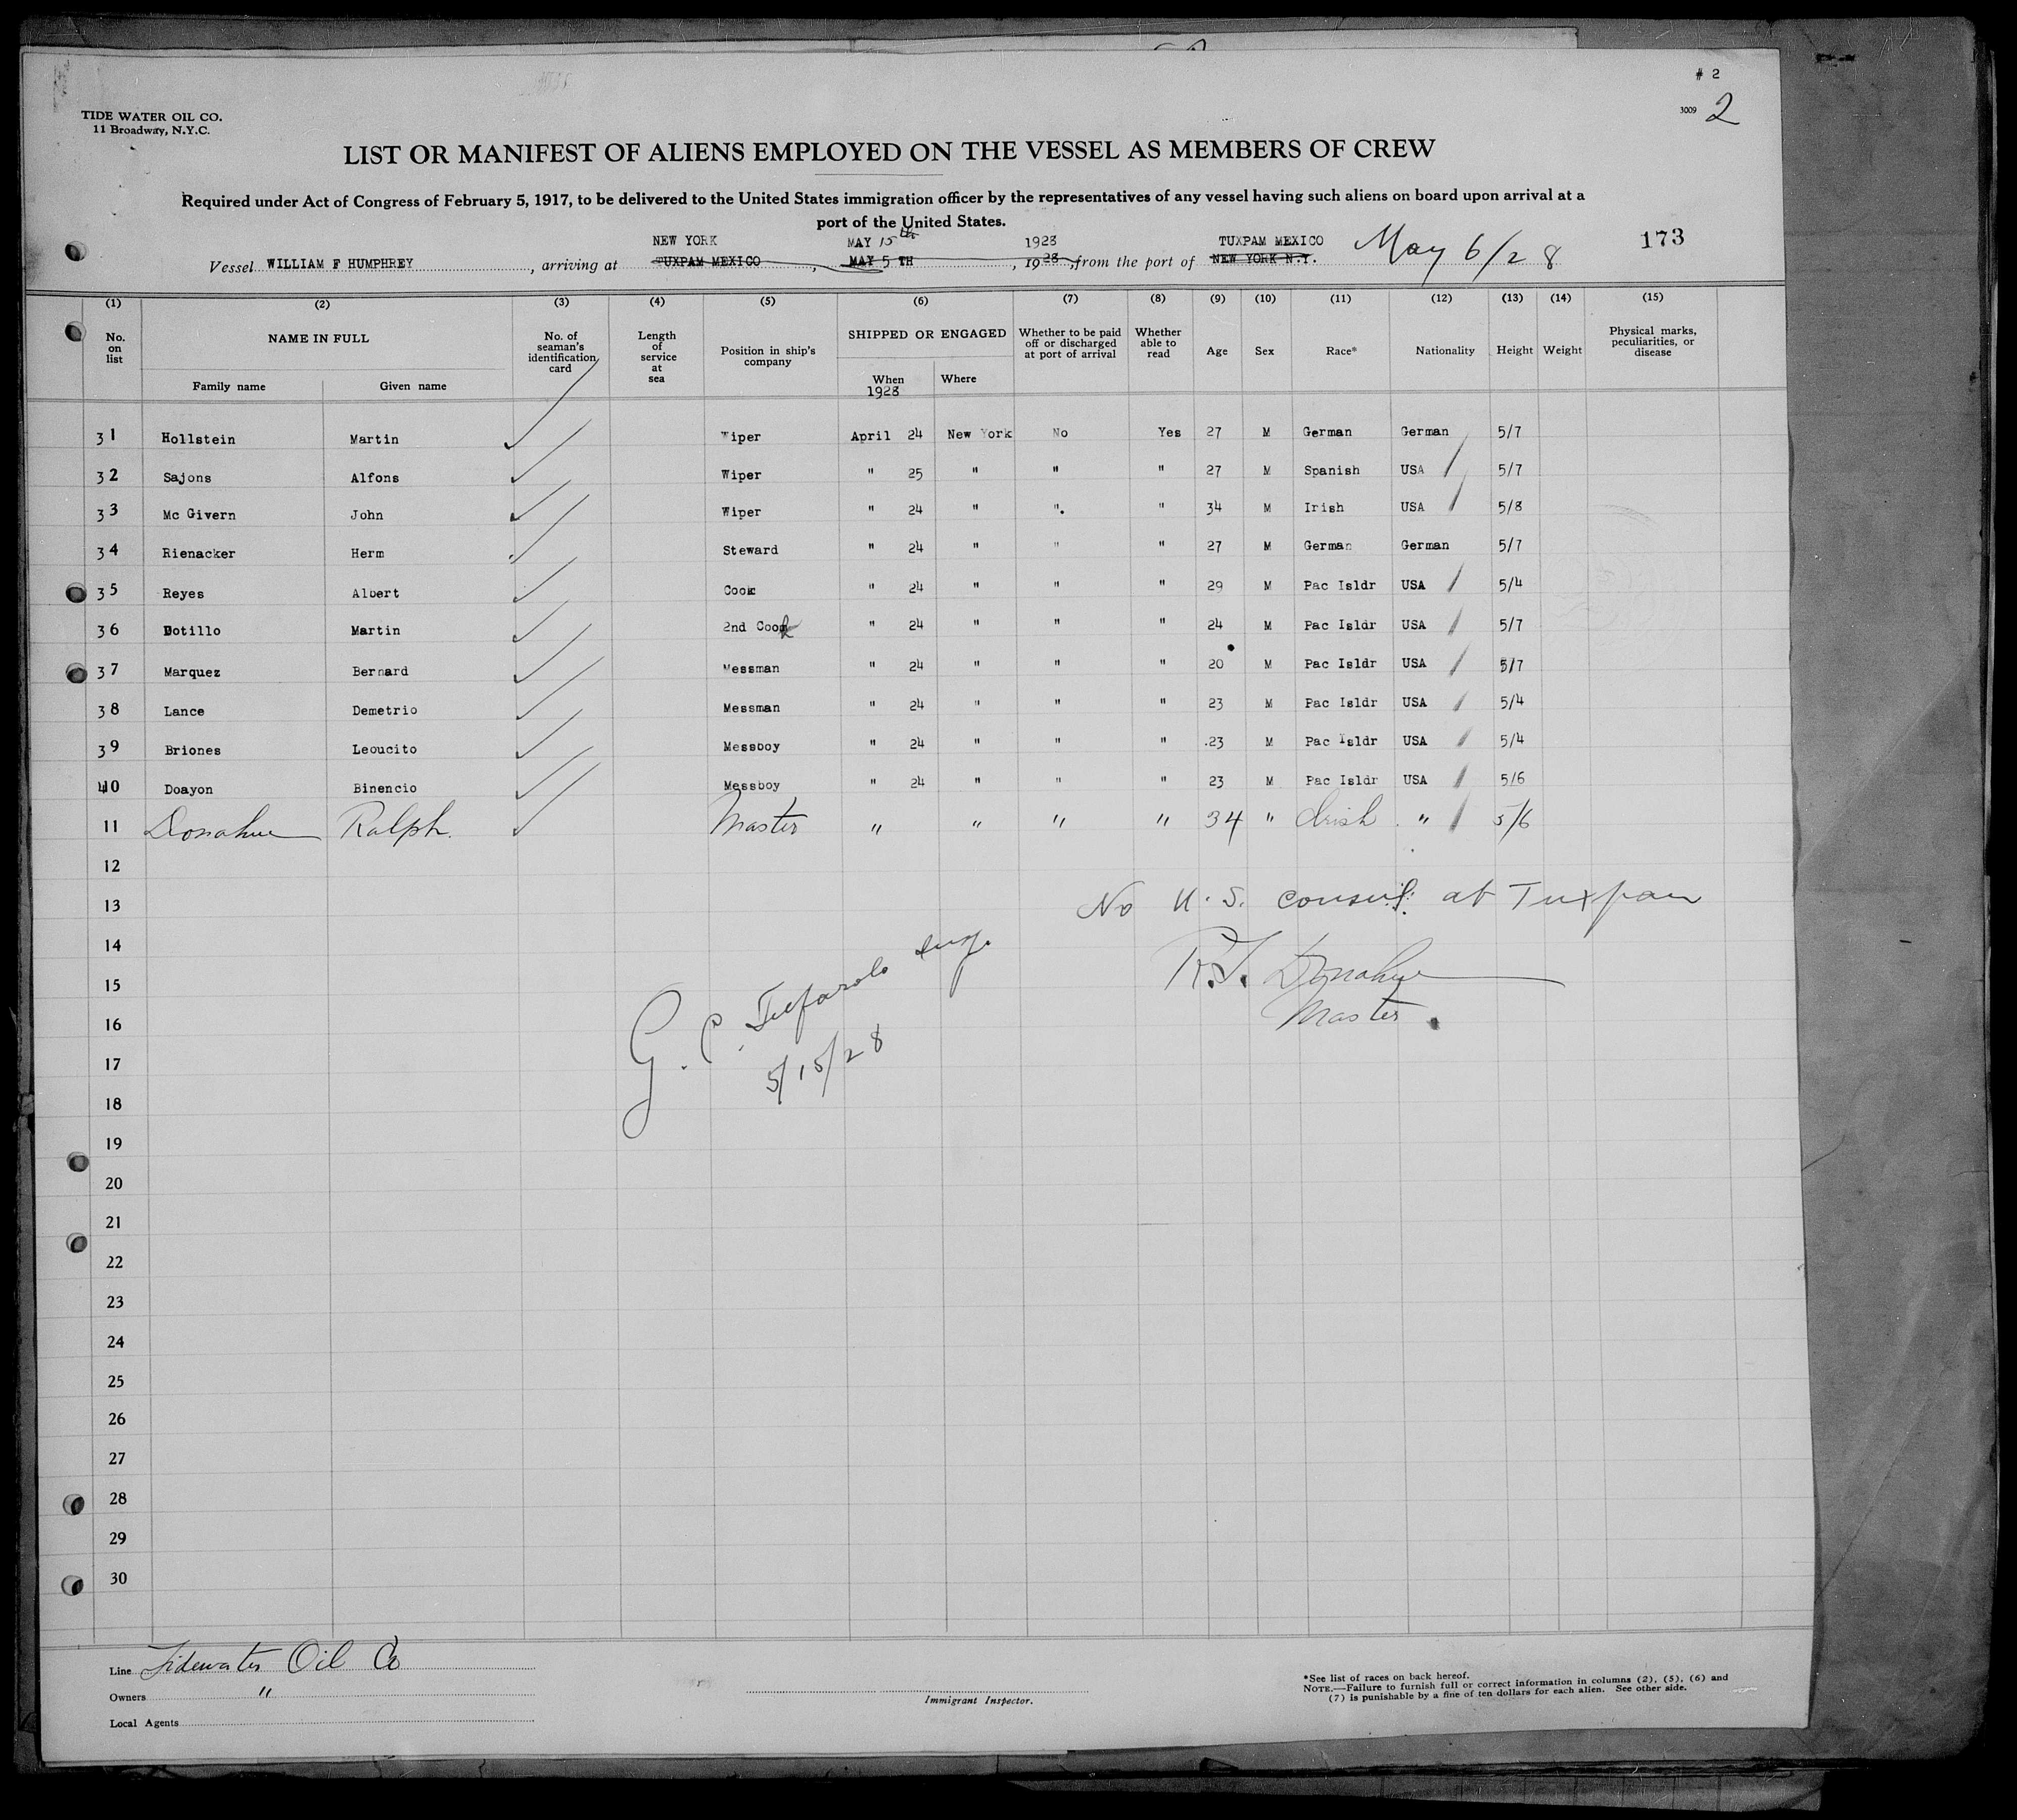 # 2
3009 2
TIDE WATER OIL CO.
11 Broadway, N.Y.C.
LIST OR MANIFEST OF ALIENS EMPLOYED ON THE VESSEL AS MEMBERS OF CREW
Required under Act of Congress of February 5, 1917, to be delivered to the United States immigration officer by the representatives of any vessel having such aliens on board upon arrival at a
port of the United States.
NEW YORK MAY 15th 1928 TUXPAM MEXICO May 6/28 173
Vessel WILLIAM F HUMPHREY, arriving at TUXPAM MEXICO, MAY 5 TH, 1928, from the port of NEW YORK N.Y.
(1) (2) (3) (4) (5) (6) (7) (8) (9) (10) (11) (12) (13) (14) (15)
No. on list NAME IN FULL Family name Given name No. of seaman's identification card Length of service at sea Position in ship's company SHIPPED OR ENGAGED When 1928 Where Whether to be paid off or discharged at port of arrival Whether able to read Age Sex Race* Nationality Height Weight Physical marks, peculiarities, or disease
31 Hollstein Martin Wiper April 24 New York No Yes 27 M German German 5/7
32 Sajons Alfons Wiper " 25 " " " 27 M Spanish USA 5/7
33 Mc Givern John Wiper " 24 " " " 34 M Irish USA 5/8
34 Rienacker Herm Steward " 24 " " " 27 M German German 5/7
35 Reyes Albert Cook " 24 " " " 29 M Pac Isldr USA 5/4
36 Dotillo Martin 2nd Cook " 24 " " " 24 M Pac Isldr USA 5/7
37 Marquez Bernard Messman " 24 " " " 20 M Pac Isldr USA 5/7
38 Lance Demetrio Messman " 24 " " " 23 M Pac Isldr USA 5/4
39 Briones Leoucito Messboy " 24 " " " 23 M Pac Isldr USA 5/4
40 Doayon Binencio Messboy " 24 " " " 23 M Pac Isldr USA 5/6
11 Donahue Ralph. Master " " " " 34 " Irish " 5/6
12
13 No U.S. consul at Tuxpan
14
15 R.J. Donahue
16 G. C. Master
17 5/15/28
18
19
20
21
22
23
24
25
26
27
28
29
30
Line Tidewater Oil Co
Owners "
Local Agents
Immigrant Inspector.
*See list of races on back hereof.
NOTE.—Failure to furnish full or correct information in columns (2), (5), (6) and
(7) is punishable by a fine of ten dollars for each alien. See other side.